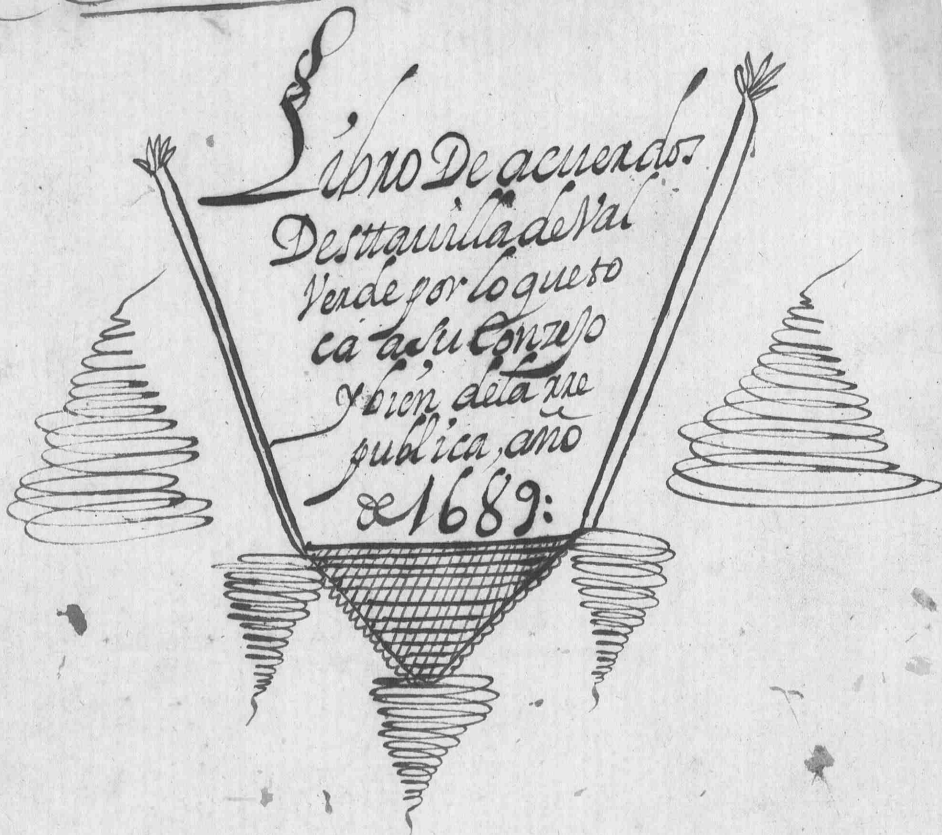 Libro De acuerdos
Desttauilla de Val
Verde por lo que to
ca a su Conzejo
y bien dela rre
publica, año
de 1689: